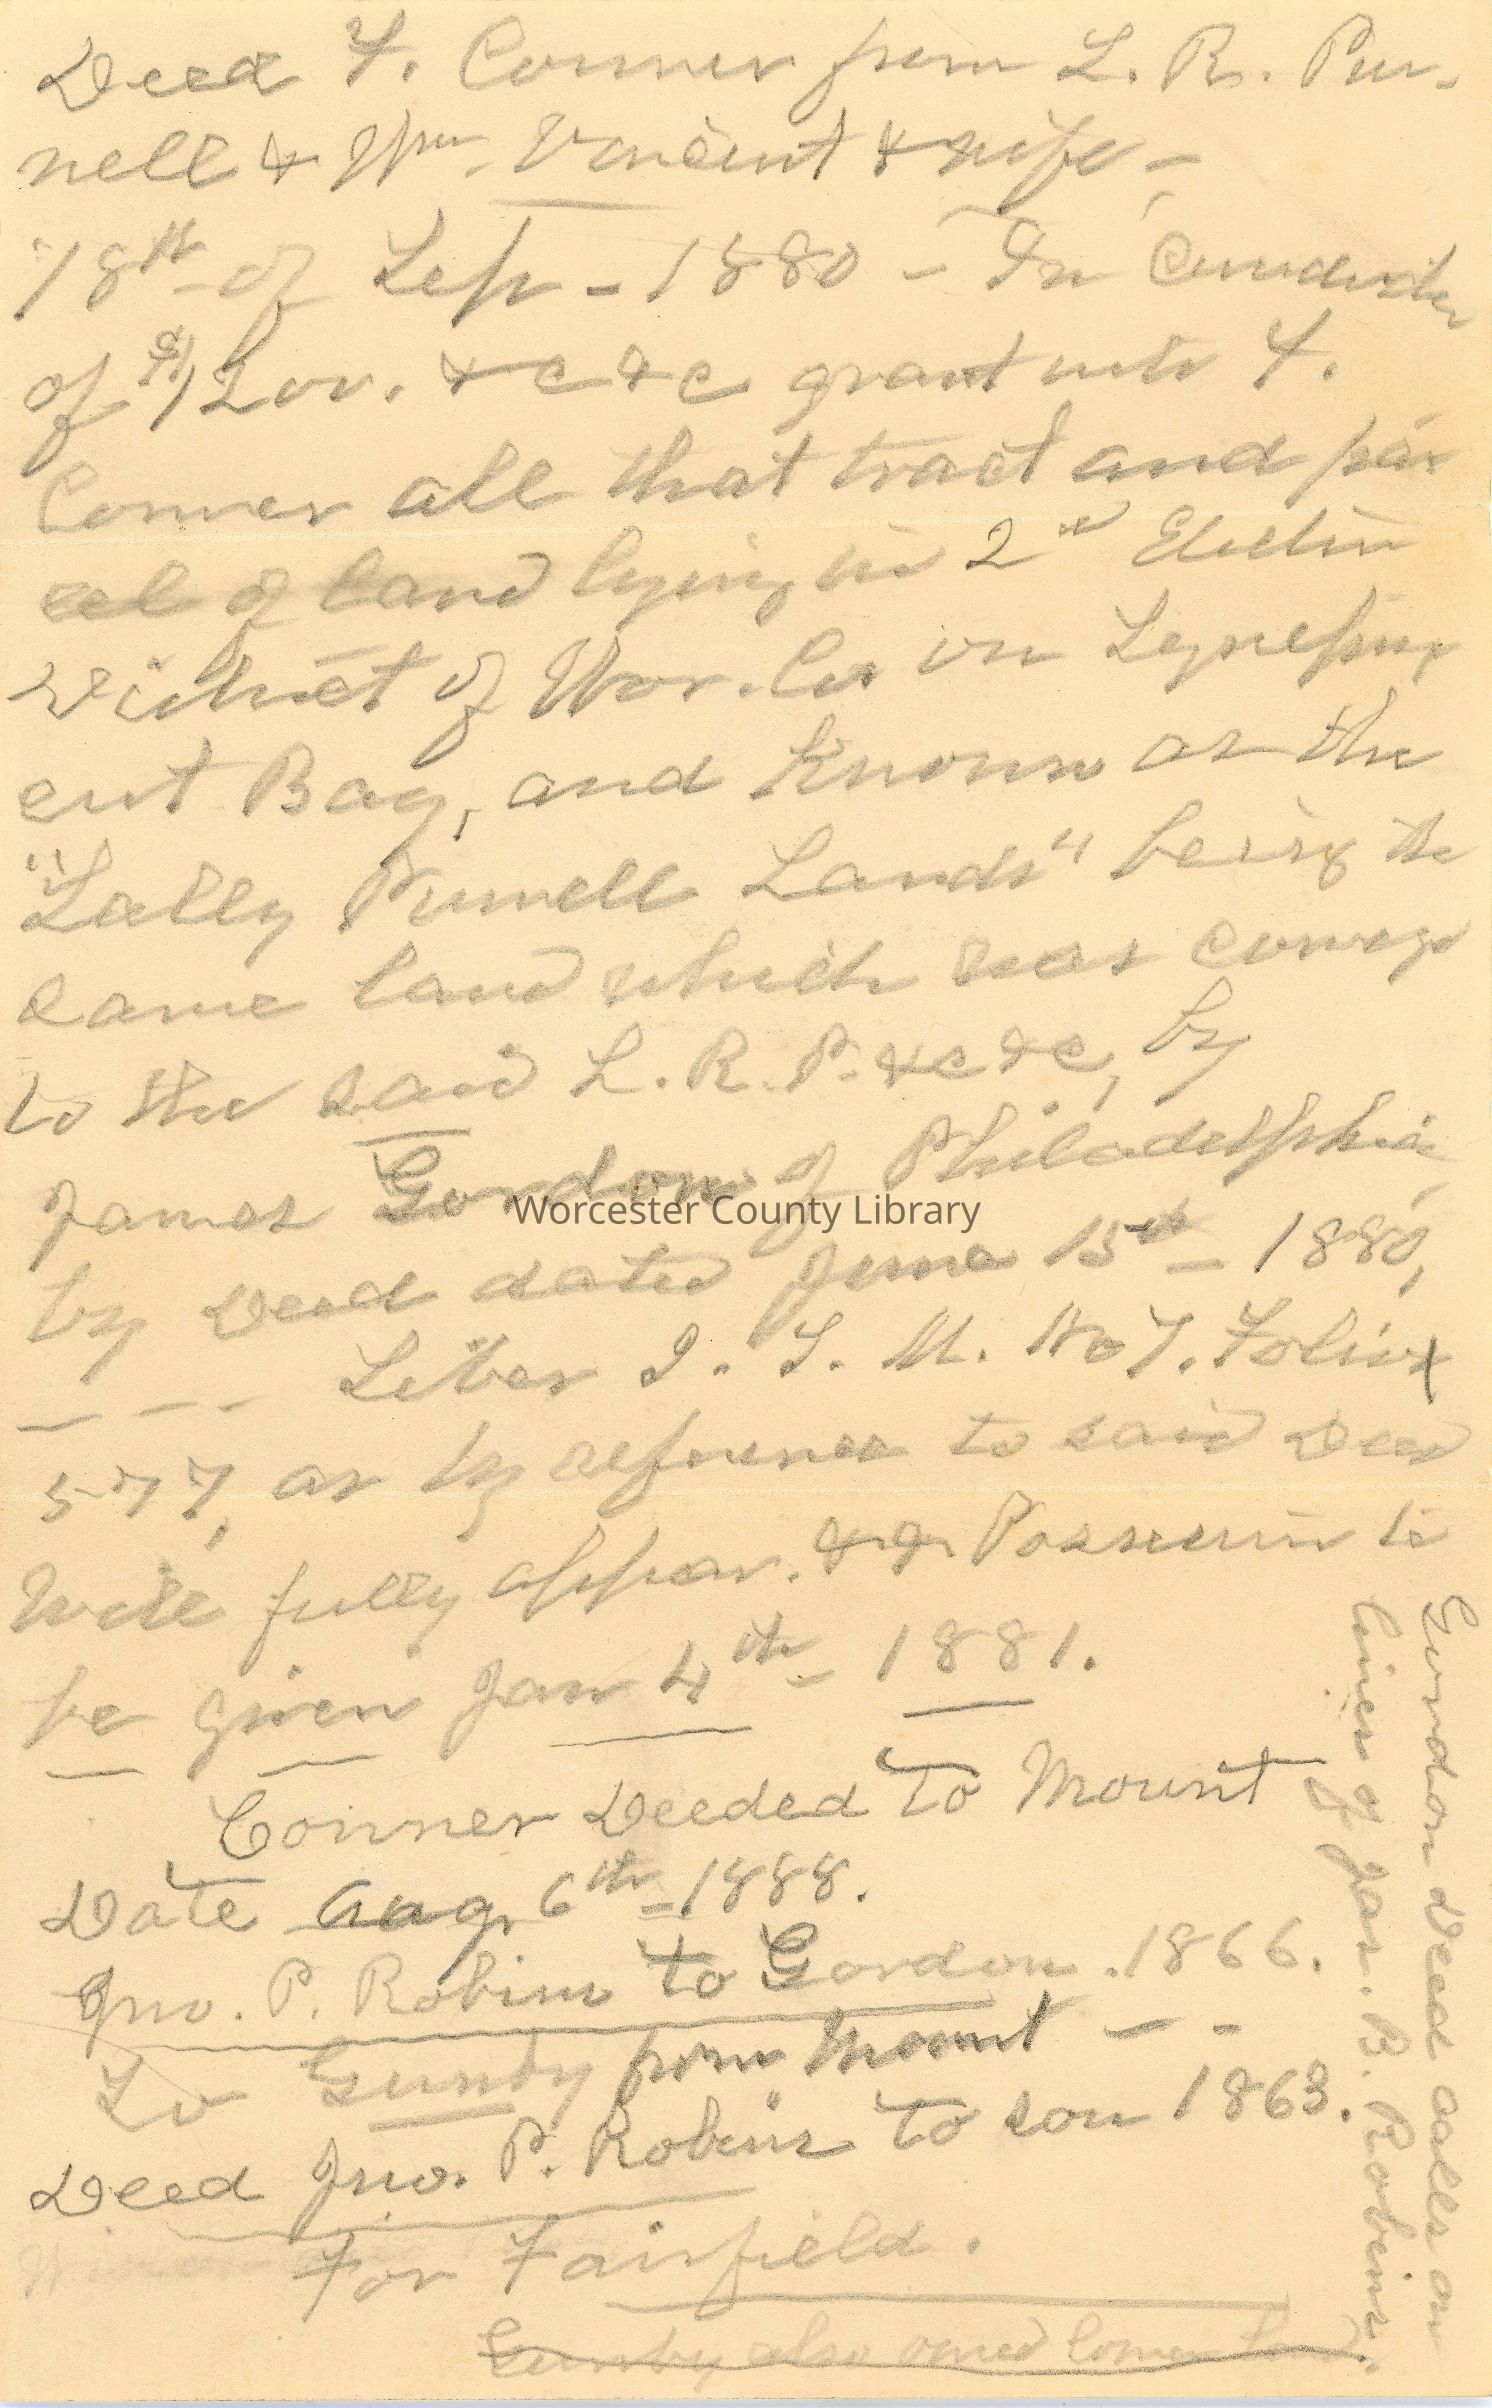 Deed F. Conner from L. R. Pur-
nell & Wm. Vincent & wife -
18th of Sep - 1880 - In Considr
of $1200. &c &c grant unto F.
Conner all that tract and par
cel of land lying in 2nd Election
District of Wor. Co on Synepux
ent Bay, and Known as the
"Sally Purnell Lands" being the
same land which was conveyd
to the said L. R. P. &c &c, by
James Gordon of Philadelphia,
by Deed dated June 15th - 1880,
--- Liber I. T. M. No 7. Folio
577, as by refrence to said Deed
Will fully appear. & & Possession to
be given Jan 4th - 1881.
Conner Deeded to Mount
Date Aug. 6th - 1888.
Jno. P. Robins to Gordon. 1866.
To Gunby from Mount - -
Deed Jno. P. Robins to son 1863.
For Fairfield.
Gunby also owned Conner land.
Gordon Deed calls on
lines of Jas. B. Robins.
Worcester County Library